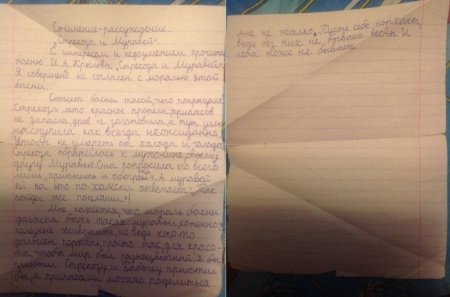 Сочинение-рассуждение.
"Стрекоза и Муравей".
С интересом и недоумением прочитал
басню И.А. Крылова "Стрекоза и Муравей".
Я совершенно не согласен с моралью этой
басни.
Сюжет басни такой, что попрыгунья
Стрекоза лето красное пропела, припасов
не запасла, дров не заготовила, а тут зима
наступила как всегда неожиданно.
Чтобы не умереть от холода и голода
Стрекоза обратилась к мужчине, своему
другу Муравью. Она попросила его всего
лишь, приютить и обогреть. А муравей
ей на это по-хамски отвечает: "Так
пойди же попляши"!
Мне кажется, что мораль басни
должна быть такая: муравьи конечно,
полезные животные, но ведь кто-то
должен порхать просто так, для красо-
ты, чтобы мир был разноцветней. Я бы
приютил Стрекозу. И Бабочку приютил
бы, а припасами можно поделиться
мне не жалко. Пусть себе порхают,
ведь без них не бывает весны. И
лета тоже не бывает.